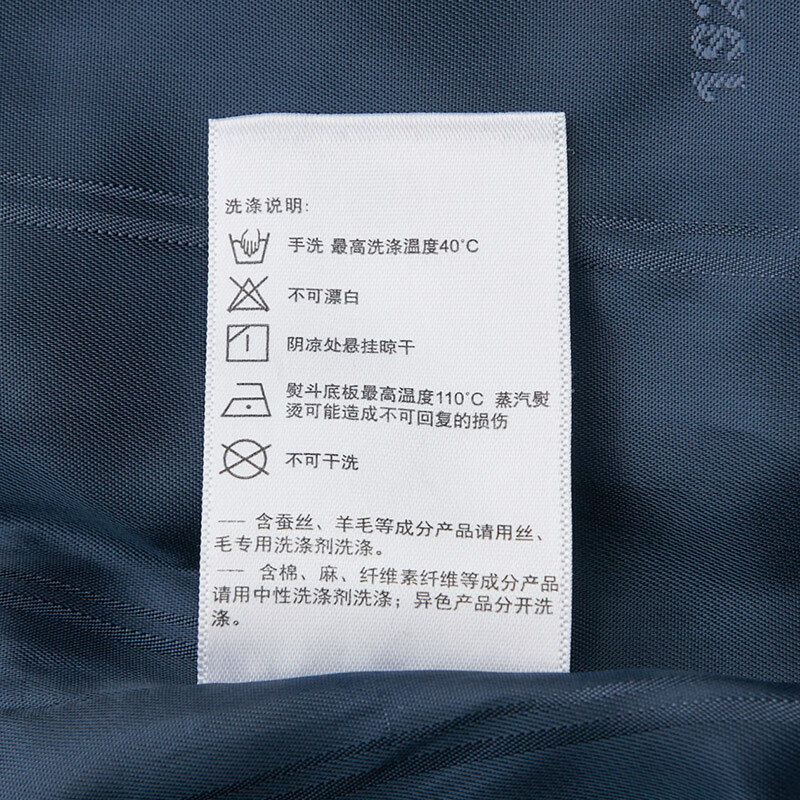 洗涤说明:
手洗 最高洗涤温度40°C
不可漂白
阴凉处悬挂晾干
熨斗底板最高温度110°C 蒸汽熨
烫可能造成不可回复的损伤
不可干洗
--- 含蚕丝、羊毛等成分产品请用丝、
毛专用洗涤剂洗涤。
--- 含棉、麻、纤维素纤维等成分产品
请用中性洗涤剂洗涤；异色产品分开洗
涤。